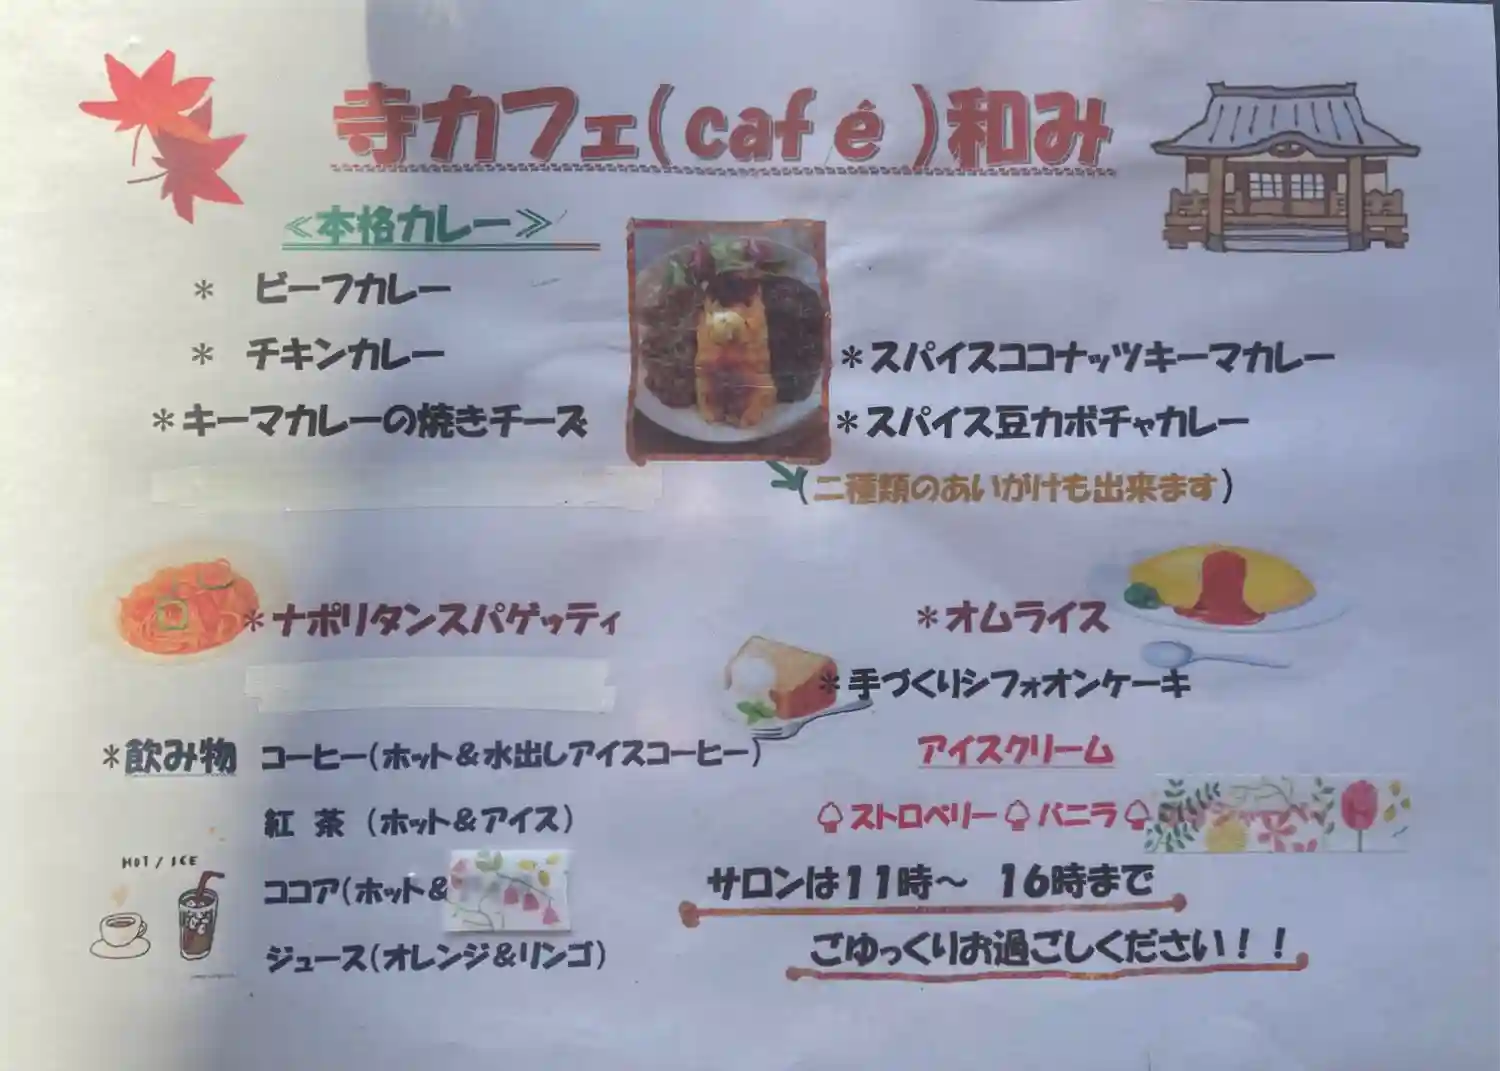 寺カフェ(café)和み
≪本格カレー≫
＊ ビーフカレー
＊ チキンカレー
＊キーマカレーの焼きチーズ
＊スパイスココナッツキーマカレー
＊スパイス豆カボチャカレー
(二種類のあいがけも出来ます)
＊ナポリタンスパゲッティ
＊オムライス
＊手づくりシフォオンケーキ
＊飲み物 コーヒー(ホット＆水出しアイスコーヒー)
紅 茶 (ホット＆アイス)
HOT / ICE
ココア(ホット＆
ジュース(オレンジ＆リンゴ)
アイスクリーム
ストロベリー バニラ
サロンは11時～ 16時まで
ごゆっくりお過ごしください！！